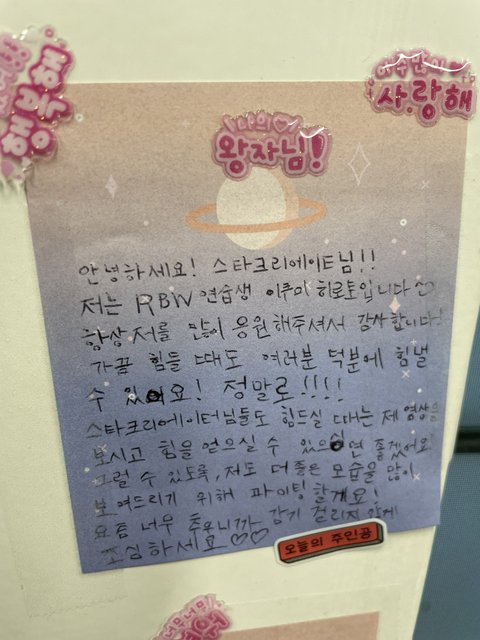 행복해
너무많이
사랑해
나의
왕자님!
안녕하세요! 스타크리에이터님!!
저는 RBW 연습생 이쿠마 히로토입니다 ♡
항상 저를 많이 응원해주셔서 감사합니다!
가끔 힘들 때도 여러분 덕분에 힘낼
수 있어요! 정말로!!!!
스타크리에이터님들도 힘드실 때는 제 영상을
보시고 힘을 얻으실 수 있으시면 좋겠어요!
그럴 수 있도록, 저도 더 좋은 모습을 많이
보여드리기 위해 파이팅 할게요!
요즘 너무 추우니까 감기 걸리지 않게
조심하세요 ♡♡
오늘의 주인공
너무너무